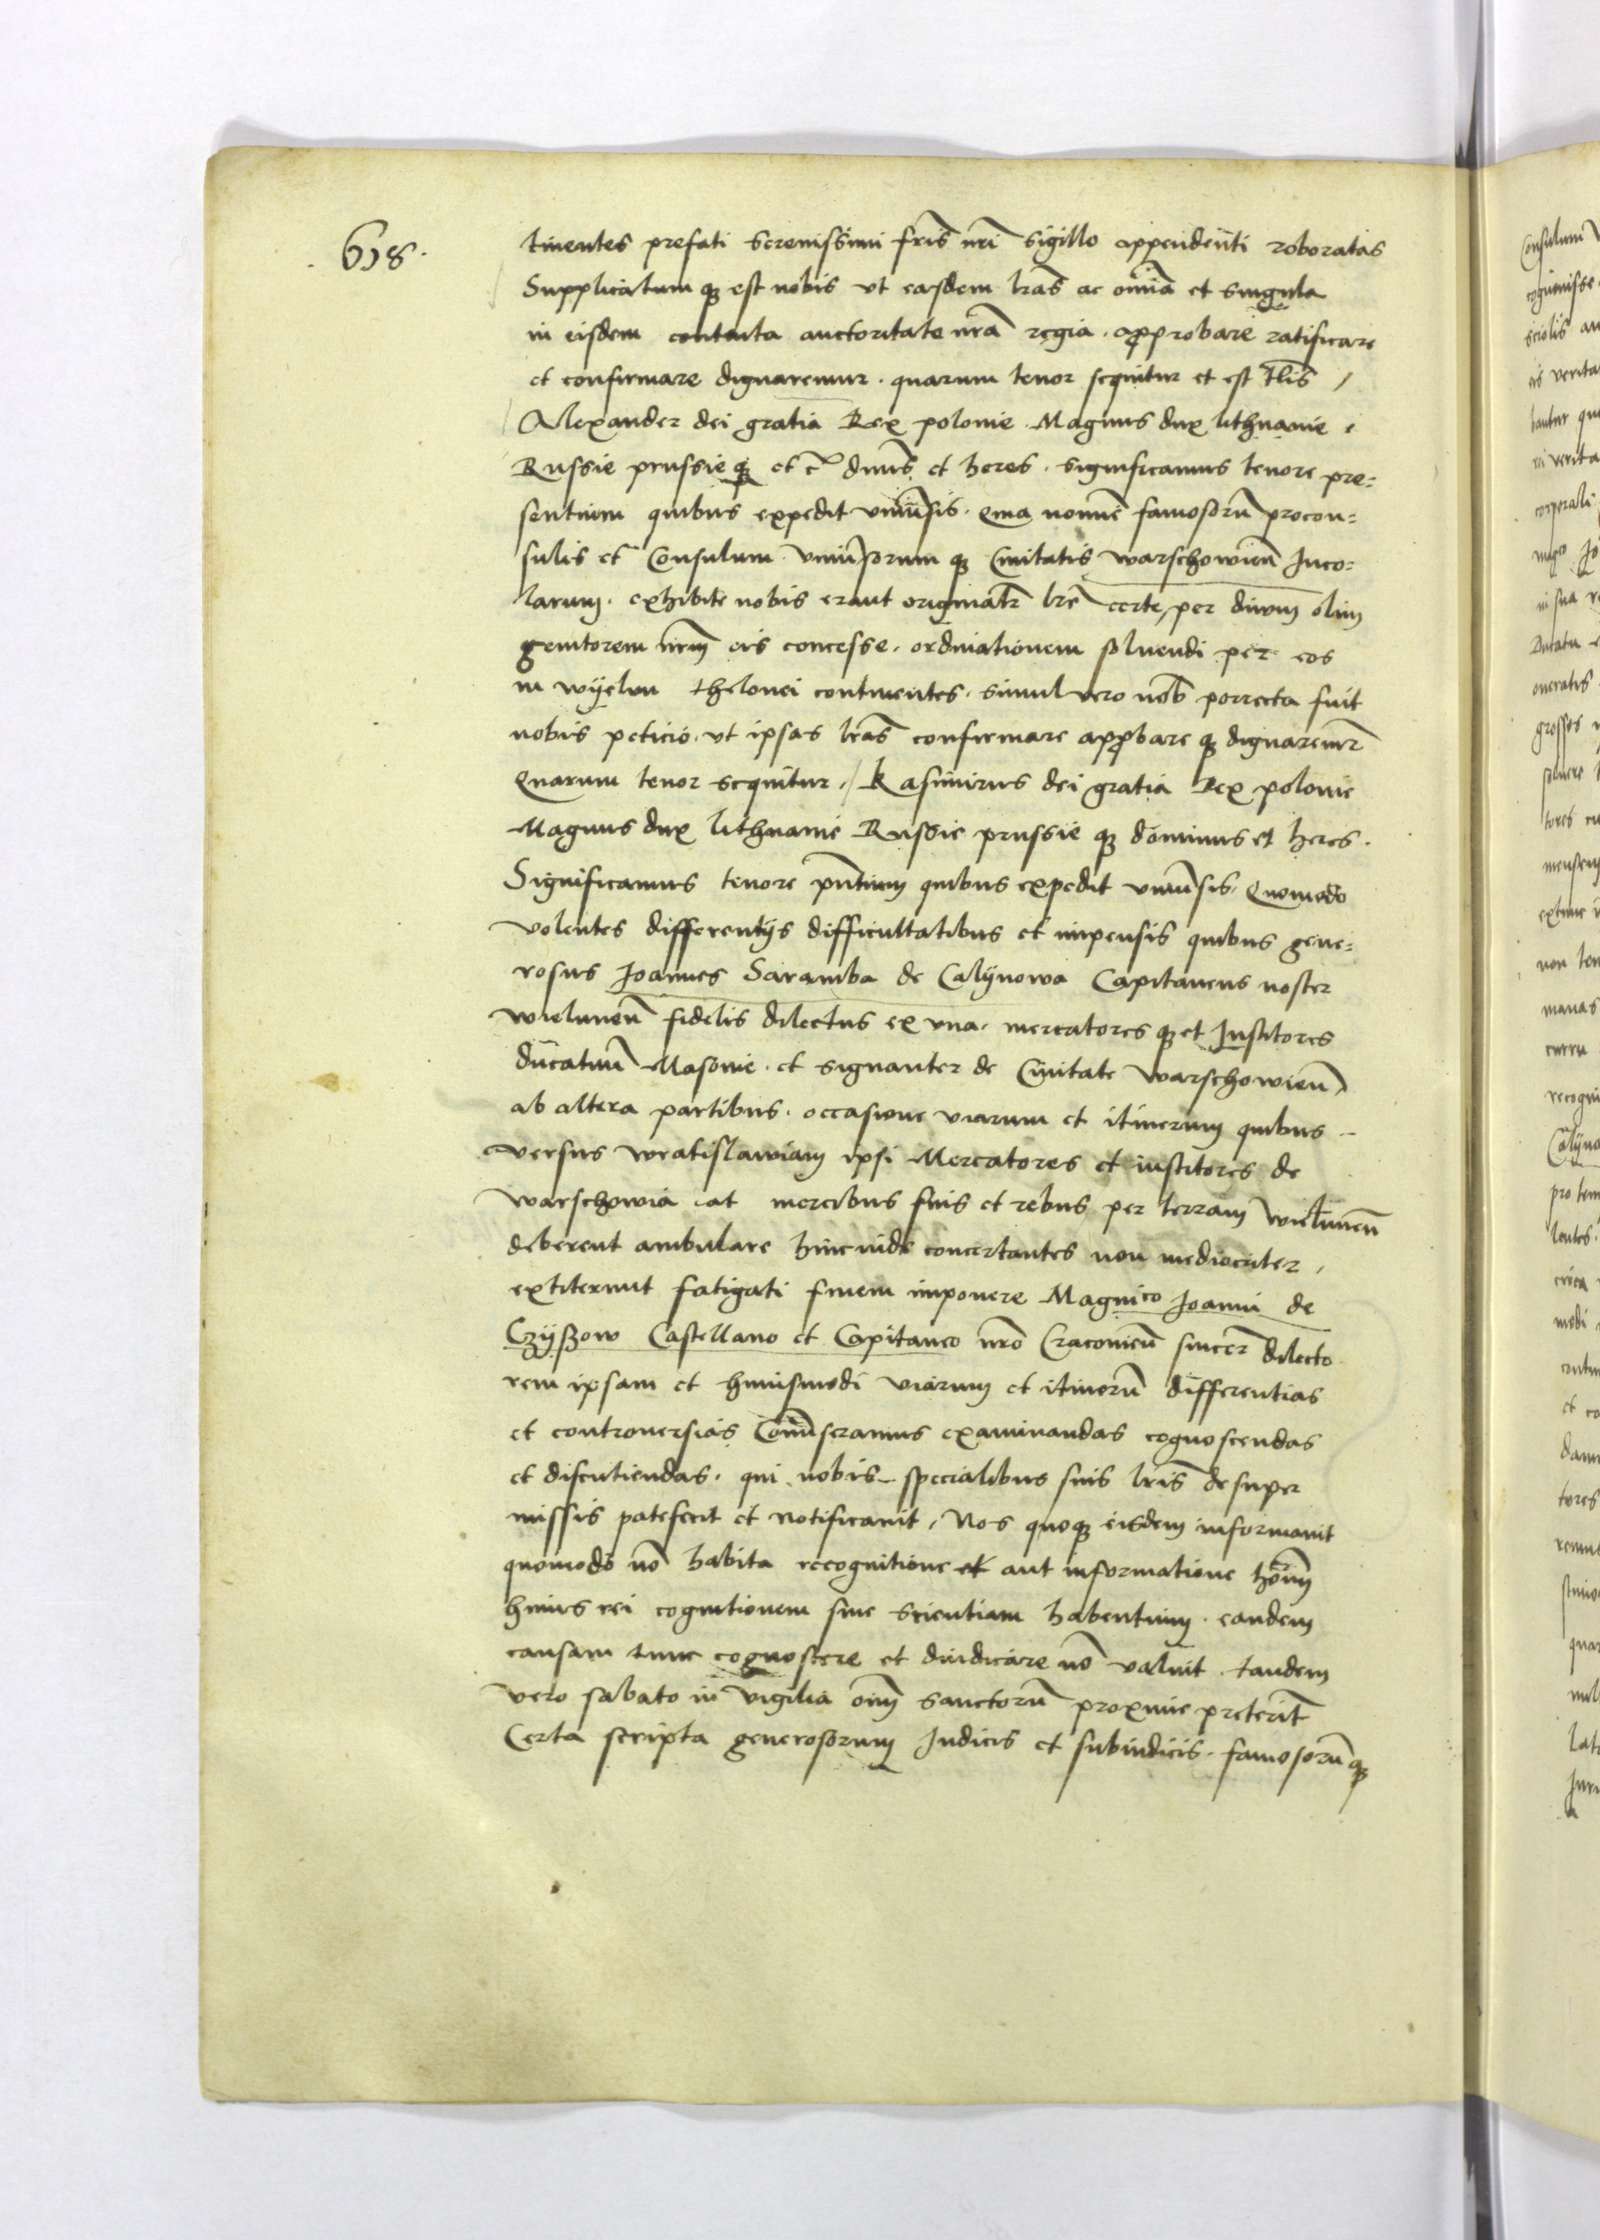 .618.
tinentes prefati serenissimi fris nri sigillo appendenti roboratas
Supplicatum q3 est nobis vt easdem lras ac omia et singula
in eisdem contenta auctoritate nra regia . approbare ratificare
et confirmare dignaremur . quarum tenor sequitur et est tlis /
Alexander dei gratia Rex polonie . Magnus dux lithuanie .
Russie prussie q3 et c̃ dnus et heres . significamus tenore pre=
sentium quibus expedit vniũsis . Quia nomine famosorũ procon=
sulis et Consulum vniũsorum q3 Ciuitatis warschowieñ Inco=
larum . exhibite nobis erant originales lre certe, per diuum olim
genitorem nrm eis concesse . ordinationem soluendi per eos
in wyelun thelonei continentes . simul vero porrecta fuit
nobis peticio . vt ipsas lras confirmare approbare q3 dignaremur
Quarum tenor sequitur . / Kasimirus dei gratia Rex polonie
Magnus dux lithuanie Russie prussie q3 dominus et heres .
Significamus tenore pntium quibus expedit vniũsis . Quomodo
volentes differentijs difficultatibus et impensis quibus gene=
rosus Joannes Saramba de Calynowa Capitaneus noster
wieluneñ fidelis dilectus ex vna . mercatores q3 et Institores
ducatuũ Masouie . et signanter de Ciuitate warschowieñ
ab altera partibus . occasione viarum et itinerum quibus
versus wratislawiam ipsi Mercatores et institores de
warschowia at mercibus suis et rebus per terram wieluneñ
deberent ambulare hinc inde concertantes non mediocriter .
extiterunt fatigati finem imponere Magnico Joanni de
Czyßow Castellano et Capitaneo nro Cracouieñ sincer dilecto
rem ipsam et huiusmodi viarum et itinerũ differentias
et controuersias Comiseramus examinandas cognoscendas
et discutiendas . qui nobis specialibus suis lris desuper
missis patefecit et notificauit . Nos quoq3 eisdem informauit
quomodo nõ habita recognitione et aut informatione hoim
huius rei cognitionem siue scientiam habentium . eandem
causam tunc cognoscere et diudicare nõ valuit . tandem
vero sabato in vigilia oim sanctorũ proxime preterit
Certa scripta generosorum Judicis et subiudicis . famosorũ q3